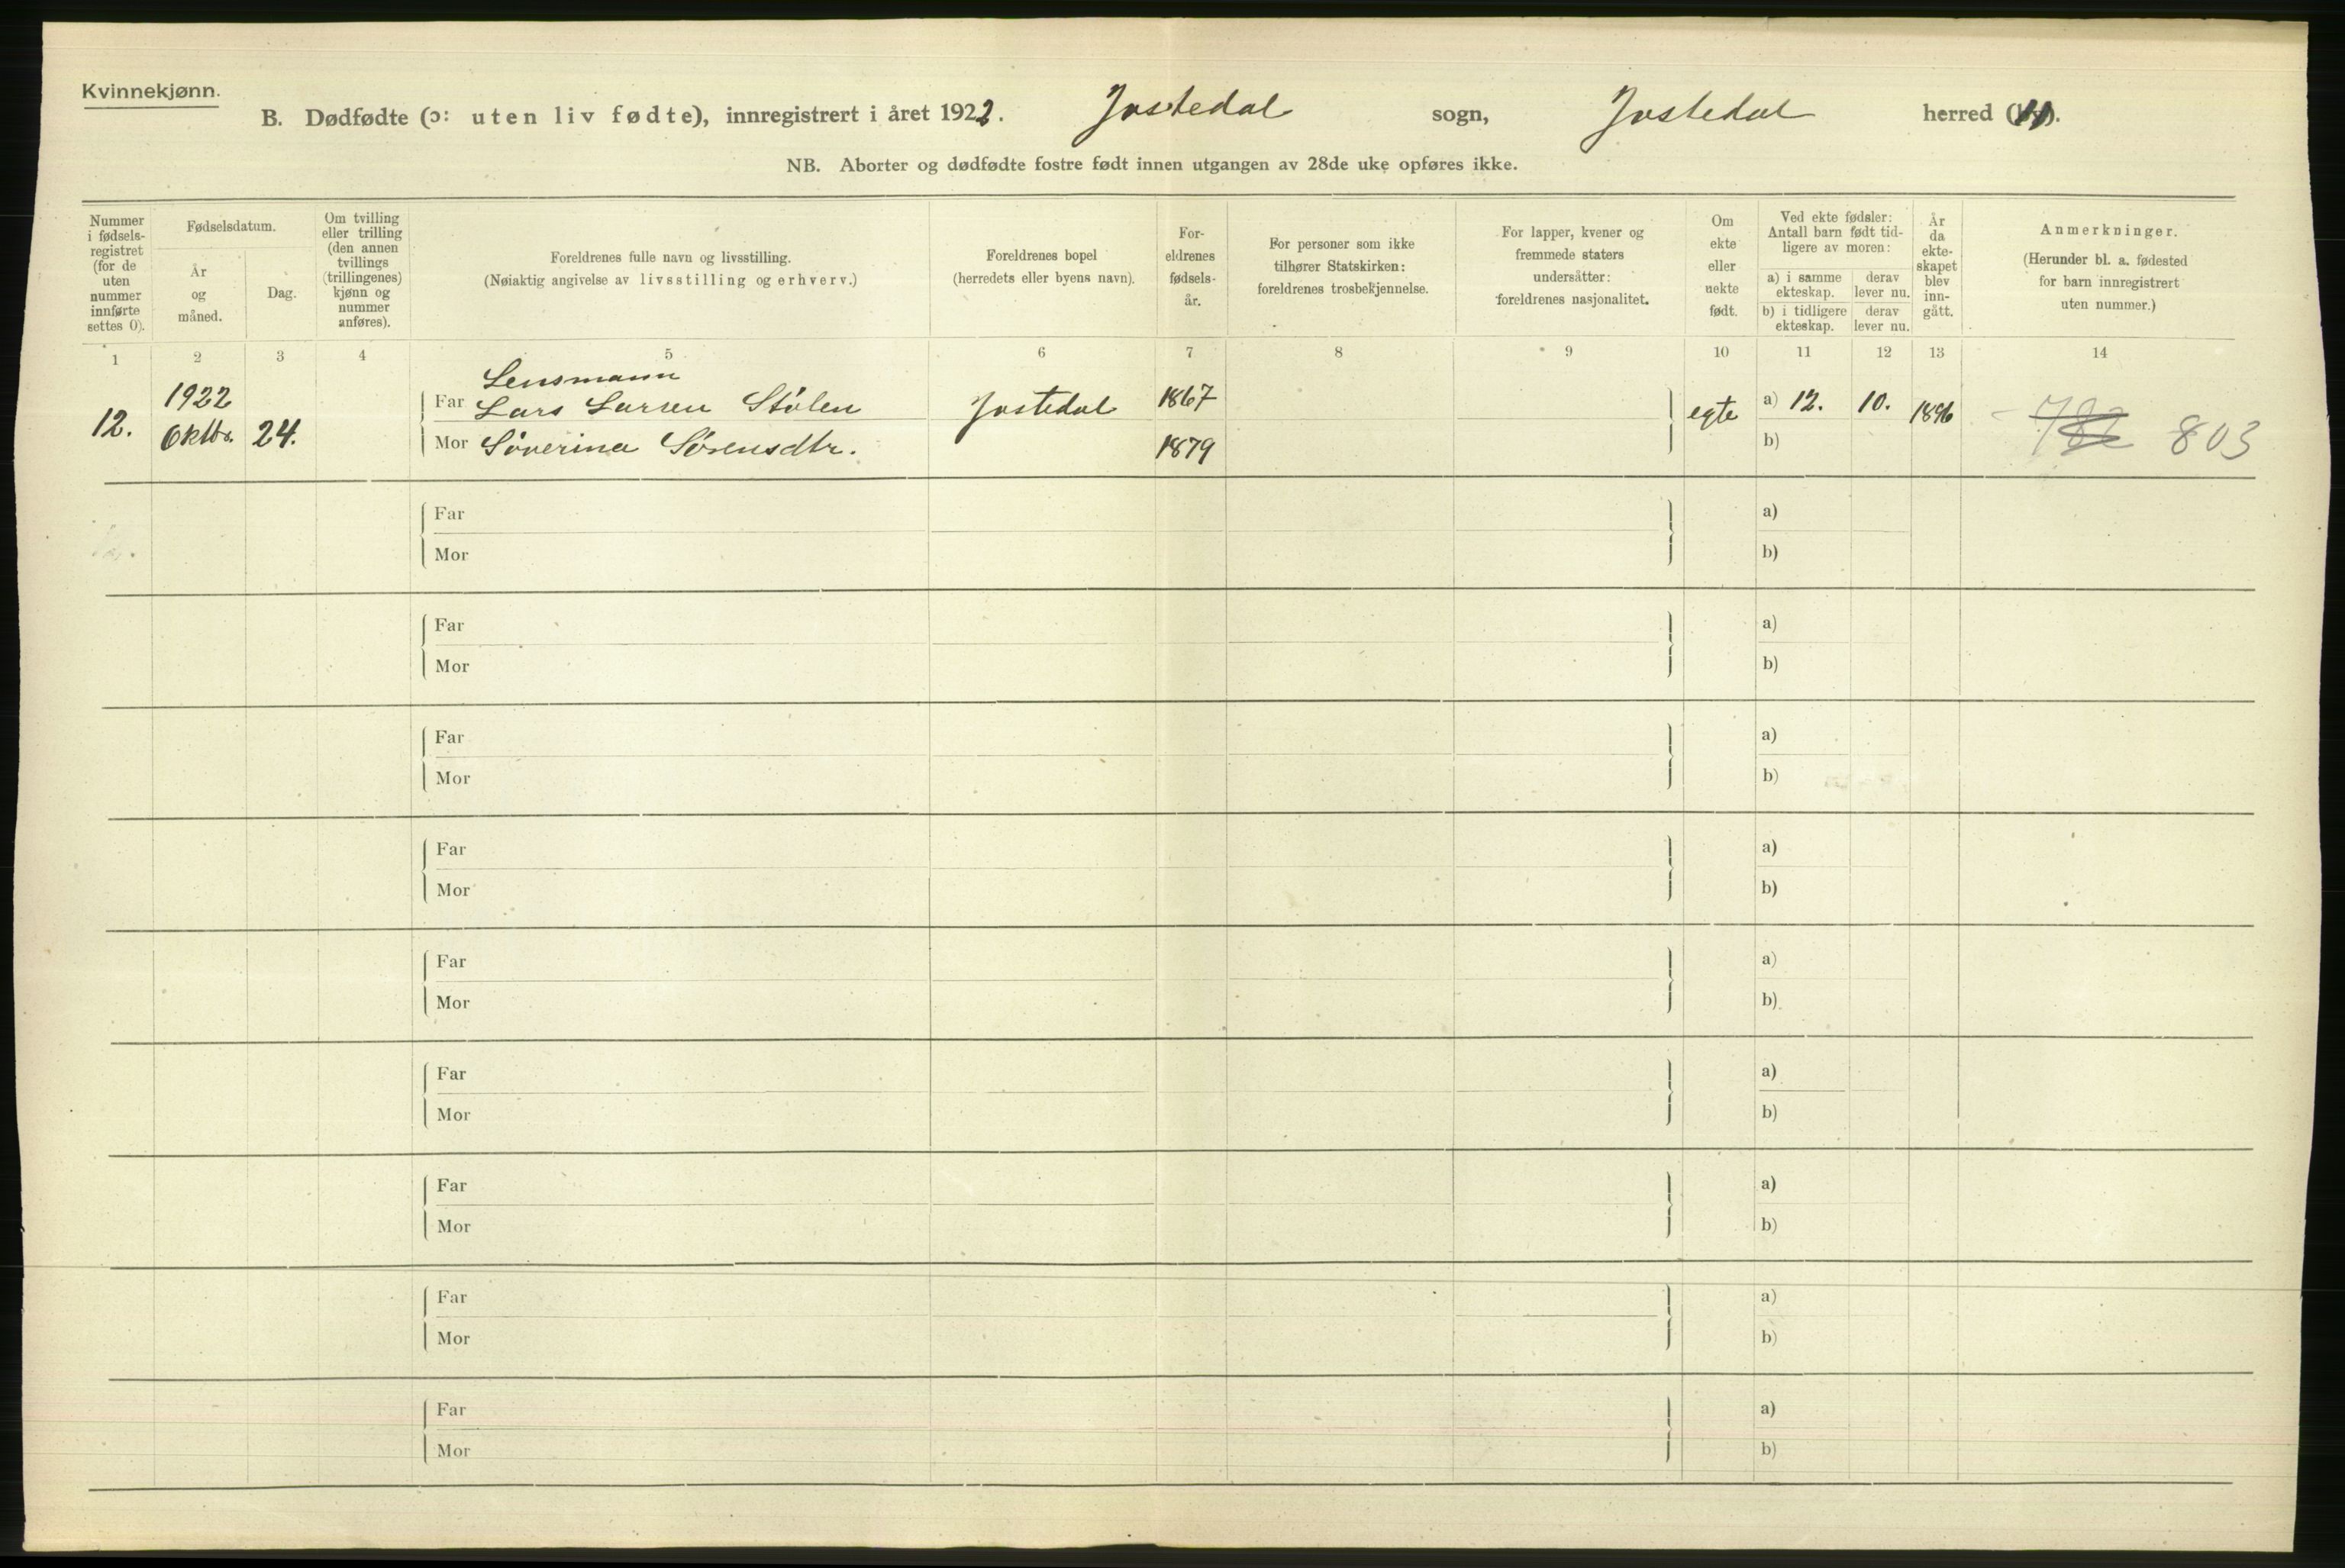 Kvinnekjønn.
B. Dødfødte (ɔ: uten liv fødte), innregistrert i året 1922. Jostedal sogn, Jostedal herred (by).
NB. Aborter og dødfødte fostre født innen utgangen av 28de uke opføres ikke.
Nummer
i fødsels-
registret
(for de
uten
nummer
innførte
settes 0).
Fødselsdatum.
År
og
måned.
Dag.
Om tvilling
eller trilling
(den annen
tvillings
(trillingenes)
kjønn og
nummer
anføres).
Foreldrenes fulle navn og livsstilling.
(Nøiaktig angivelse av livsstilling og erhverv.)
Foreldrenes bopel
(herredets eller byens navn).
For-
eldrenes
fødsels-
år.
For personer som ikke
tilhører Statskirken:
foreldrenes trosbekjennelse.
For lapper, kvener og
fremmede staters
undersåtter:
foreldrenes nasjonalitet.
Om
ekte
eller
uekte
født.
Ved ekte fødsler:
Antall barn født tid-
ligere av moren:
a) i samme
ekteskap.
derav
lever nu.
b) i tidligere
ekteskap.
derav
lever nu.
År
da
ekte-
skapet
blev
inn-
gått.
Anmerkninger.
(Herunder bl. a. fødested
for barn innregistrert
uten nummer.)
1 2 3 4 5 6 7 8 9 10 11 12 13 14
Lensmann
12. 1922 Oktbr. 24. Far Lars Larsen Stølen Jostedal 1867 egte a) 12. 10. 1896 803
Mor Søverina Sørensdtr. 1879 b)
Far a)
Mor b)
Far a)
Mor b)
Far a)
Mor b)
Far a)
Mor b)
Far a)
Mor b)
Far a)
Mor b)
Far a)
Mor b)
Far a)
Mor b)
Far a)
Mor b)